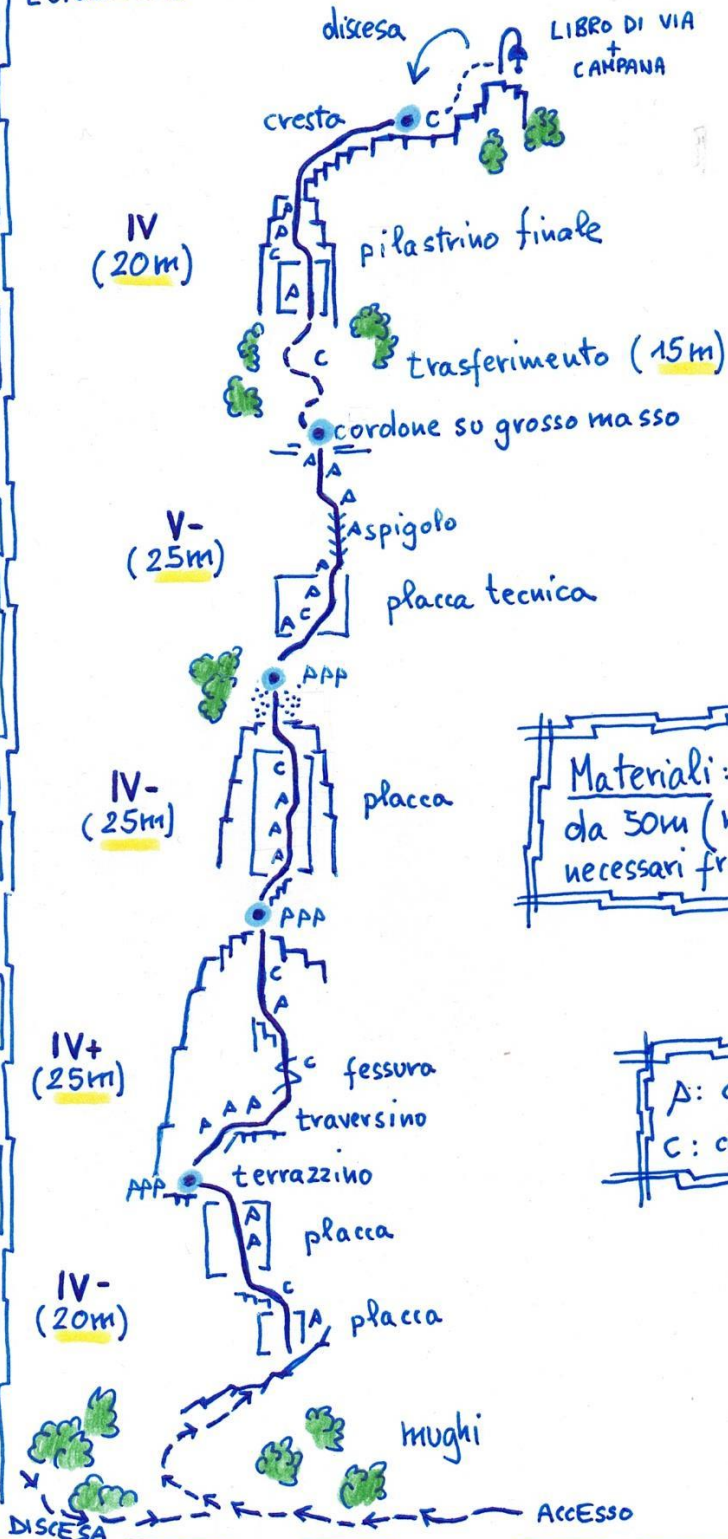 discesa
LIBRO DI VIA
+
CAMPANA
C
cresta
A
A
C
A
IV
(20m)
pilastrino finale
C
trasferimento (15m)
cordone su grosso masso
A A
A
V-
(25m)
A spigolo
A
A
C
A
placca tecnica
AAA
C
A
A
A
IV-
(25m)
placca
Materiali:
da 50m (
necessari
AAA
C
A
IV+
(25m)
C fessura
A A A
traversino
A:
C:
AAA
terrazzino
A
A
placca
C
IV-
(20m)
A
placca
mughi
DISCESA
ACCESSO